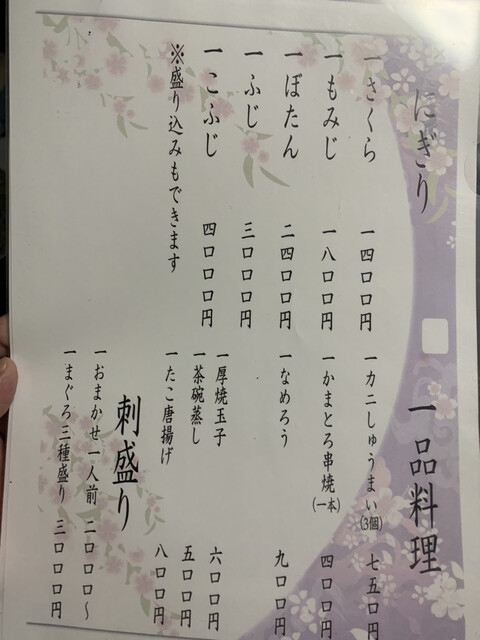 にぎり
一さくら 一四〇〇円
一もみじ 一八〇〇円
一ぼたん 二四〇〇円
一ふじ 三〇〇〇円
一こふじ 四〇〇〇円
※盛り込みもできます
一品料理
一カニしゅうまい(3個) 七五〇円
一かまとろ串焼(一本) 四〇〇円
一なめろう 九〇〇円
一厚焼玉子 六〇〇円
一茶碗蒸し 五〇〇円
一たこ唐揚げ 八〇〇円
刺盛り
一おまかせ一人前 二〇〇〇～
一まぐろ三種盛り 三〇〇〇円